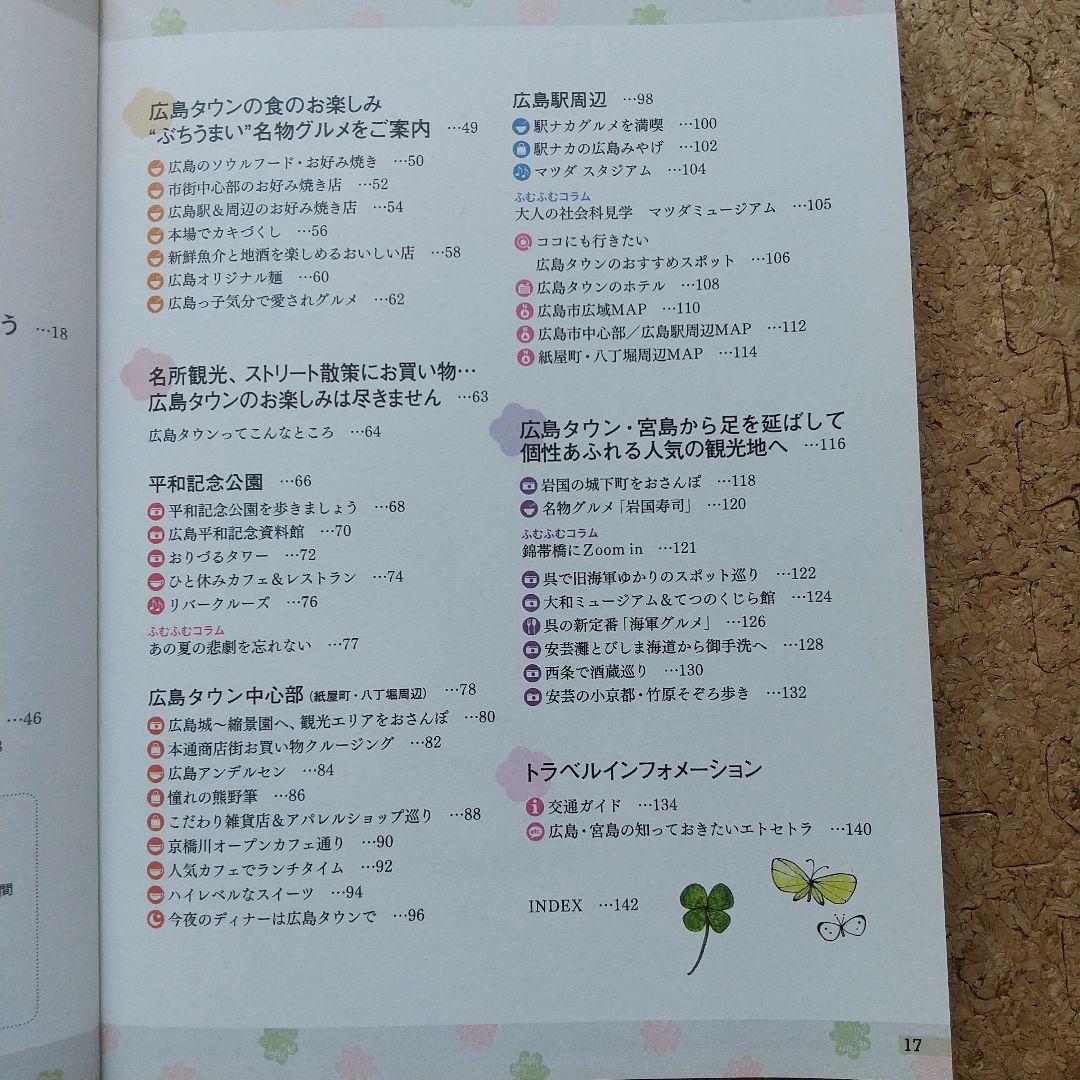 う …18
…46
間
広島タウンの食のお楽しみ
“ぶちうまい”名物グルメをご案内 …49
広島のソウルフード・お好み焼き …50
市街中心部のお好み焼き店 …52
広島駅＆周辺のお好み焼き店 …54
本場でカキづくし …56
新鮮魚介と地酒を楽しめるおいしい店 …58
広島オリジナル麺 …60
広島っ子気分で愛されグルメ …62
名所観光、ストリート散策にお買い物…
広島タウンのお楽しみは尽きません …63
広島タウンってこんなところ …64
平和記念公園 …66
平和記念公園を歩きましょう …68
広島平和記念資料館 …70
おりづるタワー …72
ひと休みカフェ＆レストラン …74
リバークルーズ …76
ふむふむコラム
あの夏の悲劇を忘れない …77
広島タウン中心部（紙屋町・八丁堀周辺） …78
広島城～縮景園へ、観光エリアをおさんぽ …80
本通商店街お買い物クルージング …82
広島アンデルセン …84
憧れの熊野筆 …86
こだわり雑貨店＆アパレルショップ巡り …88
京橋川オープンカフェ通り …90
人気カフェでランチタイム …92
ハイレベルなスイーツ …94
今夜のディナーは広島タウンで …96
広島駅周辺 …98
駅ナカグルメを満喫 …100
駅ナカの広島みやげ …102
マツダ スタジアム …104
ふむふむコラム
大人の社会科見学 マツダミュージアム …105
ココにも行きたい
広島タウンのおすすめスポット …106
広島タウンのホテル …108
広島市広域MAP …110
広島市中心部／広島駅周辺MAP …112
紙屋町・八丁堀周辺MAP …114
広島タウン・宮島から足を延ばして
個性あふれる人気の観光地へ …116
岩国の城下町をおさんぽ …118
名物グルメ「岩国寿司」 …120
ふむふむコラム
錦帯橋にZoom in …121
呉で旧海軍ゆかりのスポット巡り …122
大和ミュージアム＆てつのくじら館 …124
呉の新定番「海軍グルメ」 …126
安芸灘とびしま海道から御手洗へ …128
西条で酒蔵巡り …130
安芸の小京都・竹原そぞろ歩き …132
トラベルインフォメーション
交通ガイド …134
etc. 広島・宮島の知っておきたいエトセトラ …140
INDEX …142
17